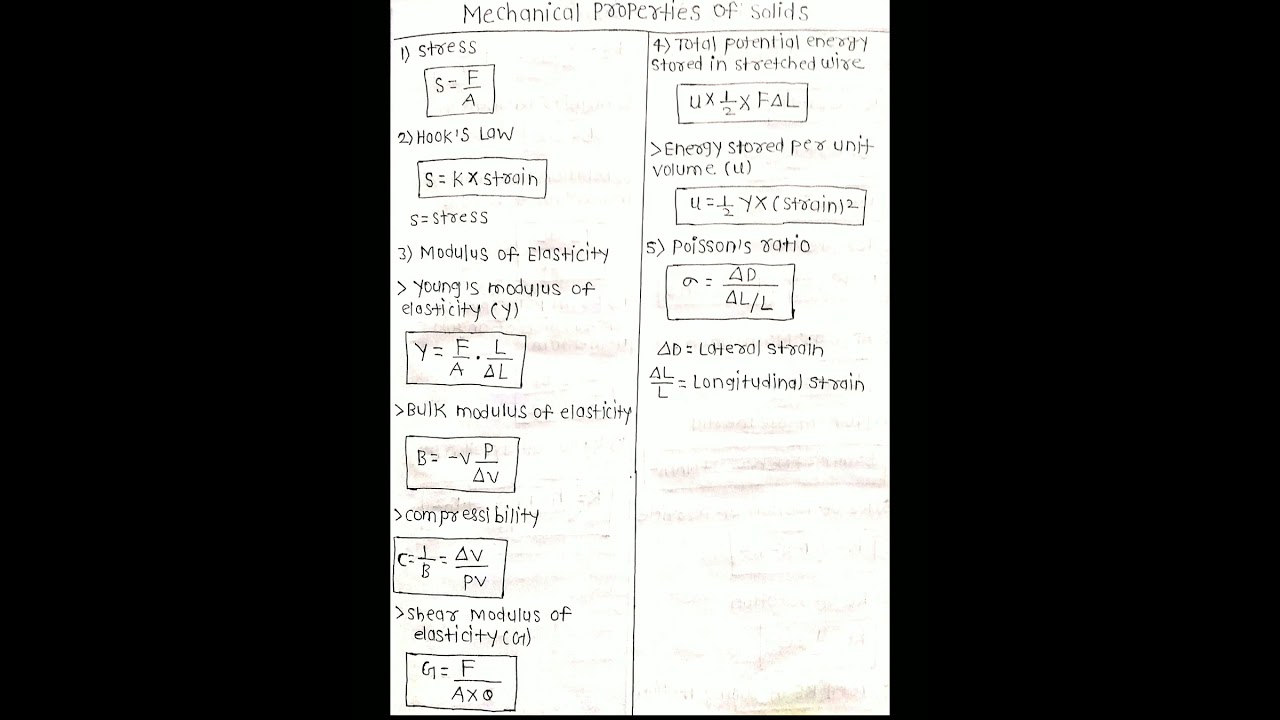 Mechanical Properties of Solids
1) Stress
S = F/A
2) HOOK'S LAW
S = K X Strain
S = Stress
3) Modulus of Elasticity
> Young's modulus of
elasticity (Y)
Y = F/A . L/ΔL
> Bulk modulus of elasticity
B = -V P/ΔV
> compressibility
C = 1/B = ΔV/PV
> Shear Modulus of
elasticity (G)
G = F/(A X θ)
4) Total potential energy
stored in stretched wire
U X 1/2 X FΔL
> Energy stored per unit
volume (u)
u = 1/2 Y X (Strain)2
5) Poisson's ratio
σ = ΔD/(ΔL/L)
ΔD = Lateral Strain
ΔL/L = Longitudinal Strain